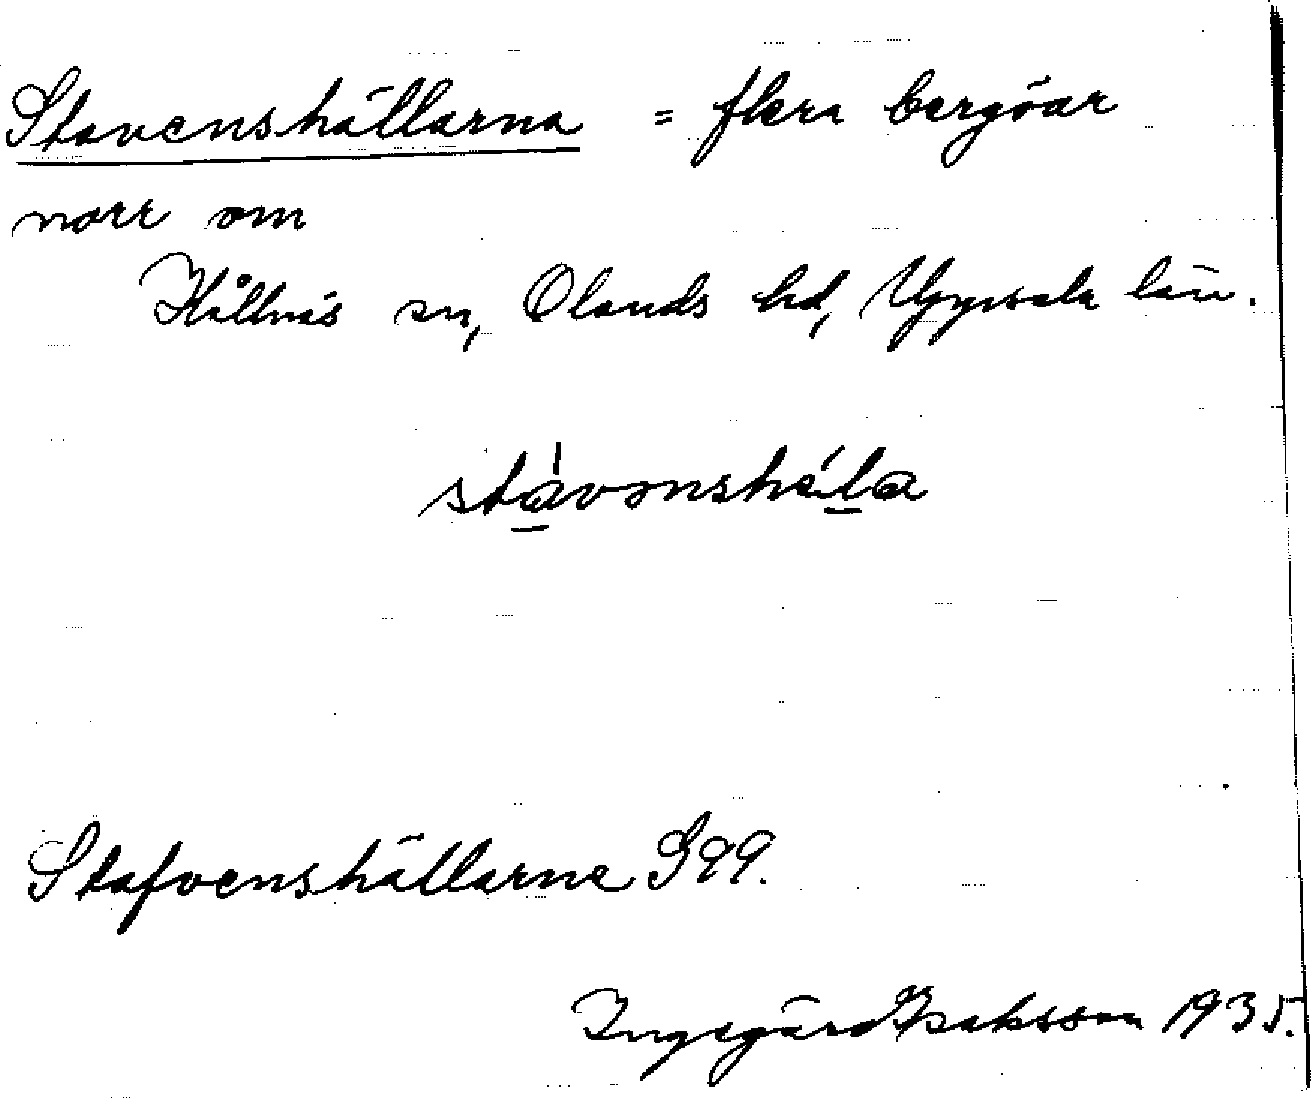 Stavenshällarna = flera bergöar
norr om
Hållnäs sn, Olands hd, Uppsala län.
Stafvenshällarne S99.
Ingegärd Isaksson 1935.